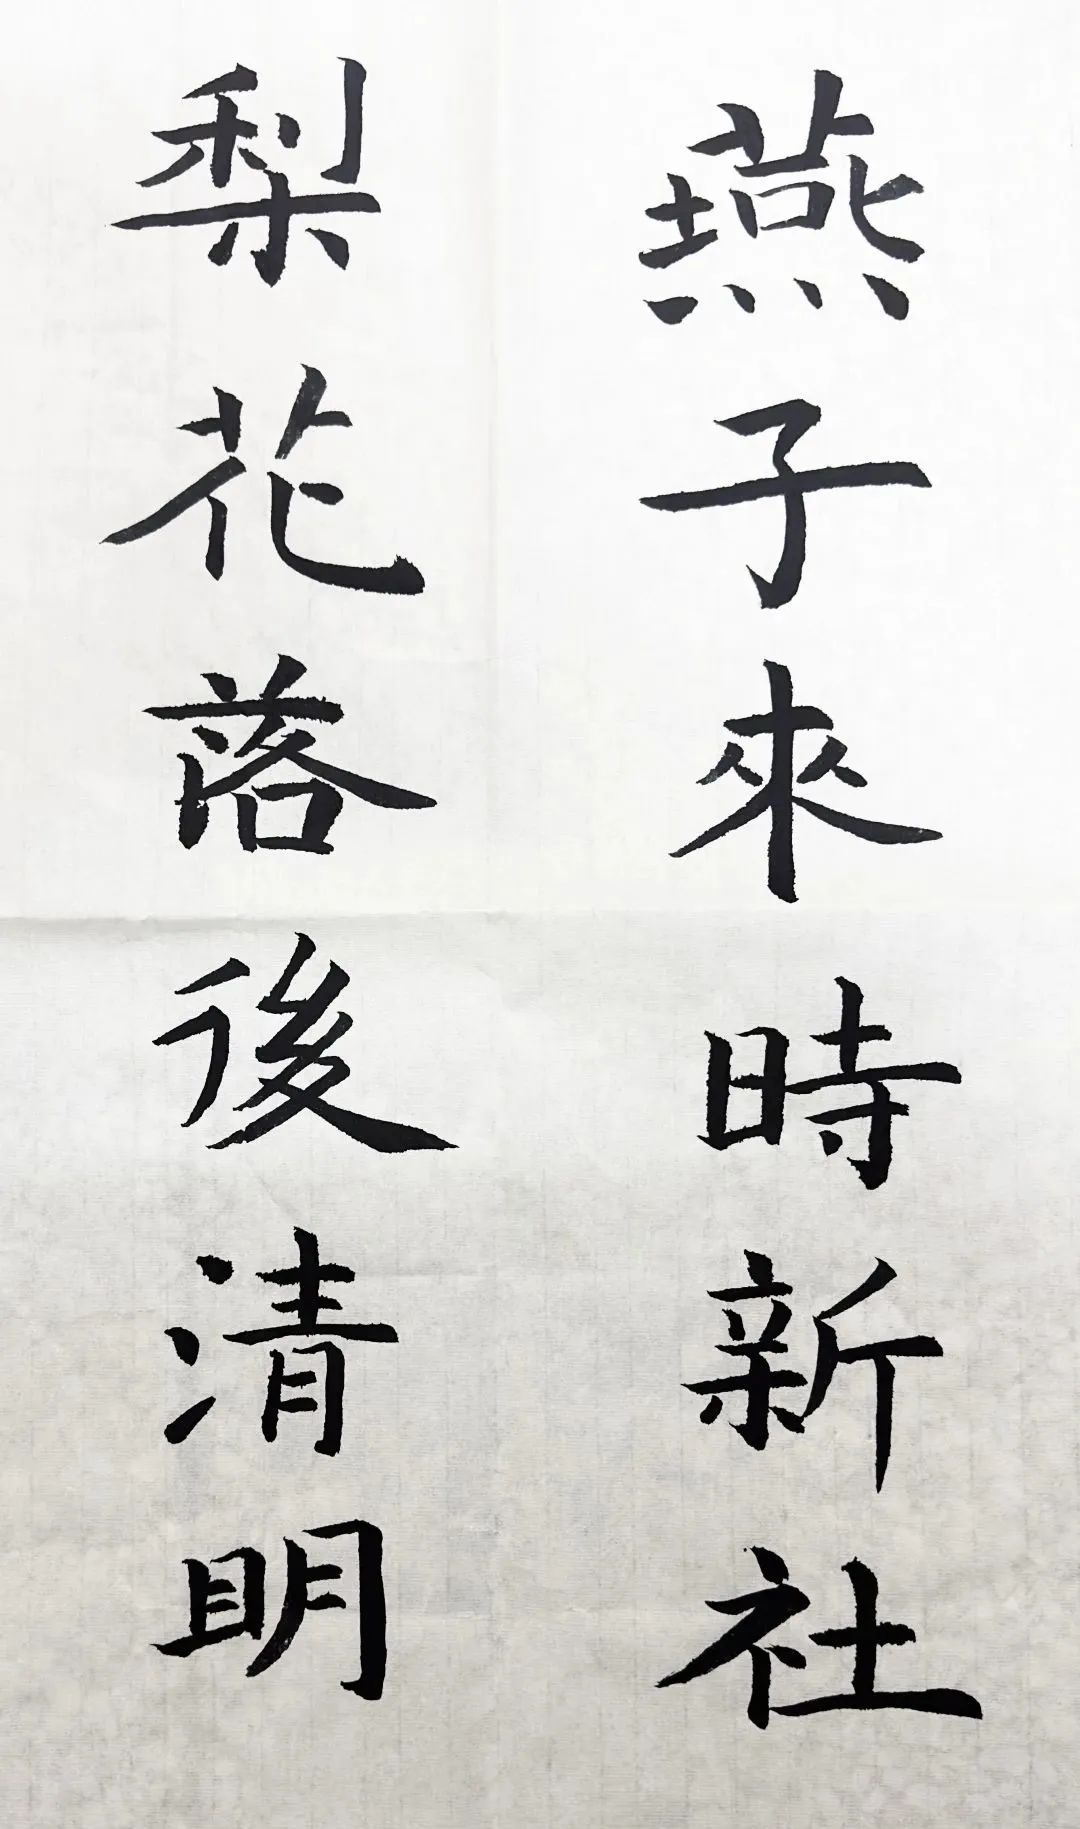 燕子來時新社
梨花落後清明